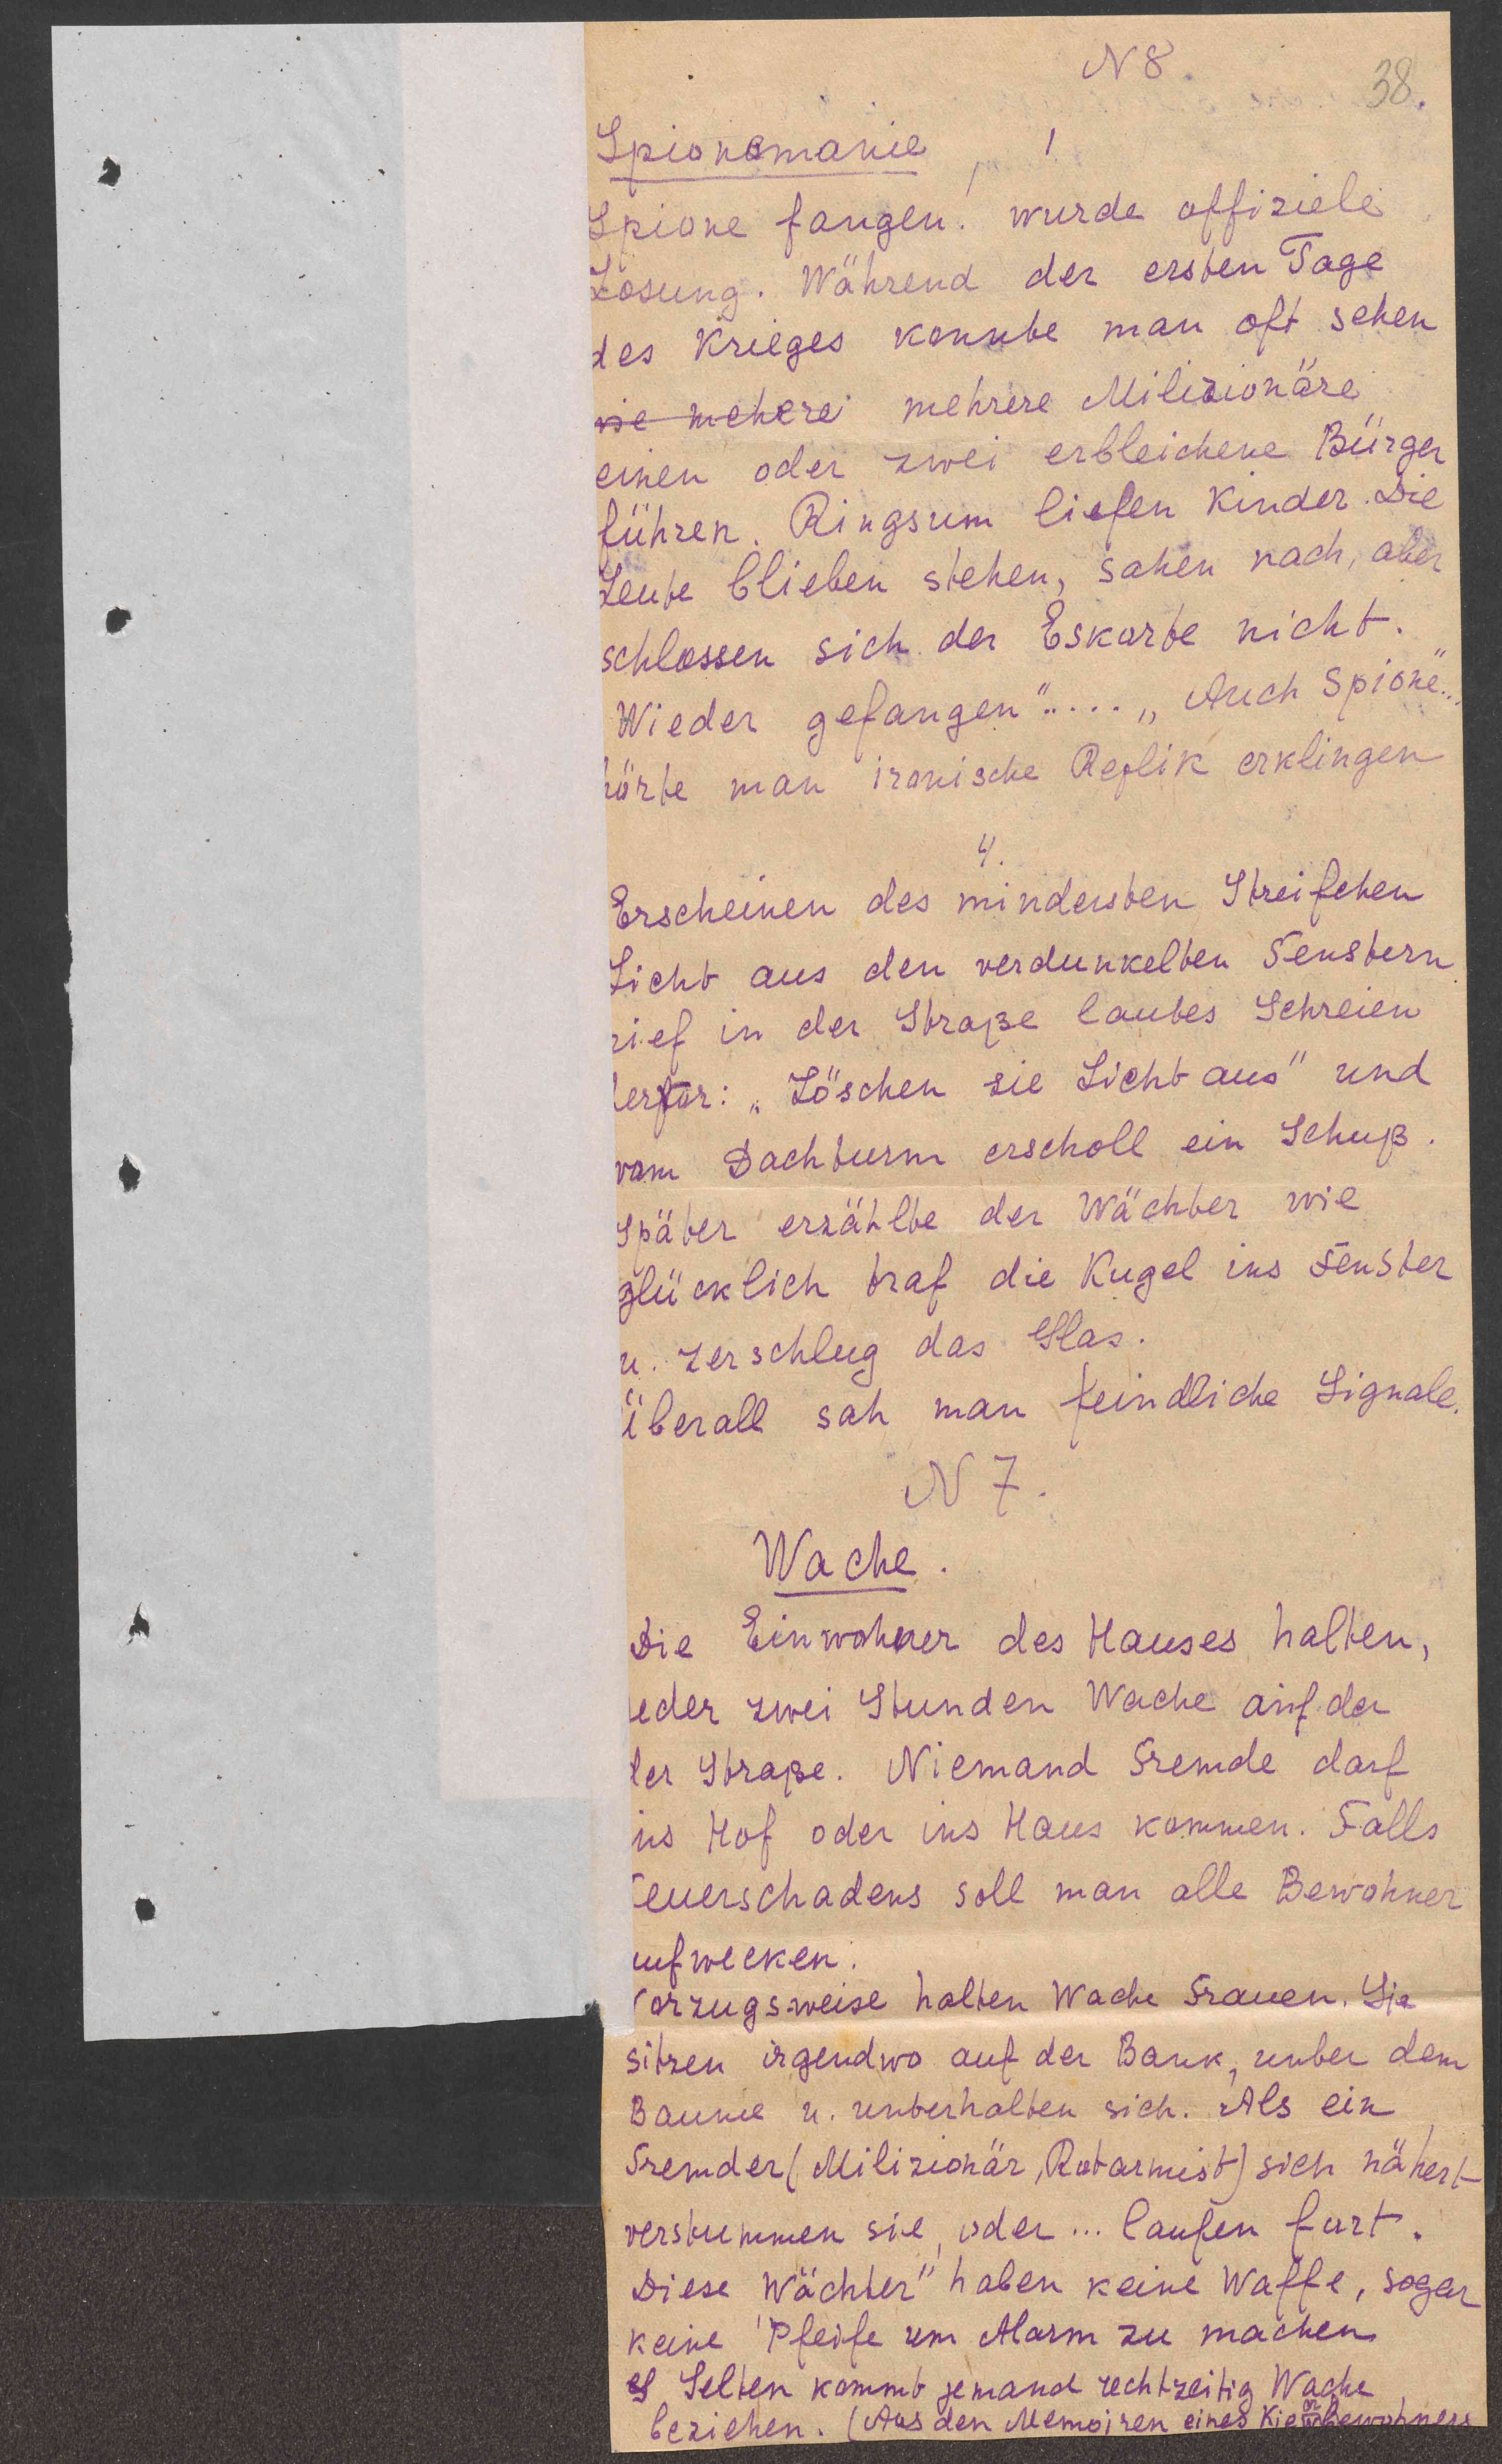 N 8.
38.
Spionomanie 1
Spione fangen! wurde offiziele
Losung. Während der ersten Tage
des Krieges konnte man oft sehen
wie meherei mehrere Milizionäre
einen oder zwei erbleichene Bürger
führen. Ringsum liefen Kinder. Die
Leute blieben stehen, sahen nach, aber
schlossen sich der Eskorte nicht.
Wieder gefangen"..... „Auch Spione"...
hörte man ironische Replik erklingen
4.
Erscheinen des mindesten Streifchen
Licht aus den verdunkelten Fenstern
rief in der Straße lautes Schreien
erfor: „Löschen sie Licht aus" und
vom Dachturm erscholl ein Schuß.
Später erzählte der Wächter wie
glücklich traf die Kugel ins Fenster
u. zerschlug das Glas.
Überall sah man feindliche Signale.
N 7.
Wache.
Die Einwohner des Hauses halten,
eder zwei Stunden Wache auf der
der Straße. Niemand Fremde darf
ins Hof oder ins Haus kommen. Falls
euerschadens soll man alle Bewohner
ufwecken.
orzugsweise halten Wache Frauen. Sie
sitzen irgendwo auf der Bank, unter dem
Baume u. unterhalten sich. Als ein
Fremder (Milizionär, Rotarmist) sich nähert
verstummen sie, oder... laufen fort.
Diese Wächter" haben keine Waffe, sogar
keine Pfeife um Alarm zu machen
Selten kommt jemand rechtzeitig Wache
beziehen. (Aus den Memoiren eines Kiewbewohners